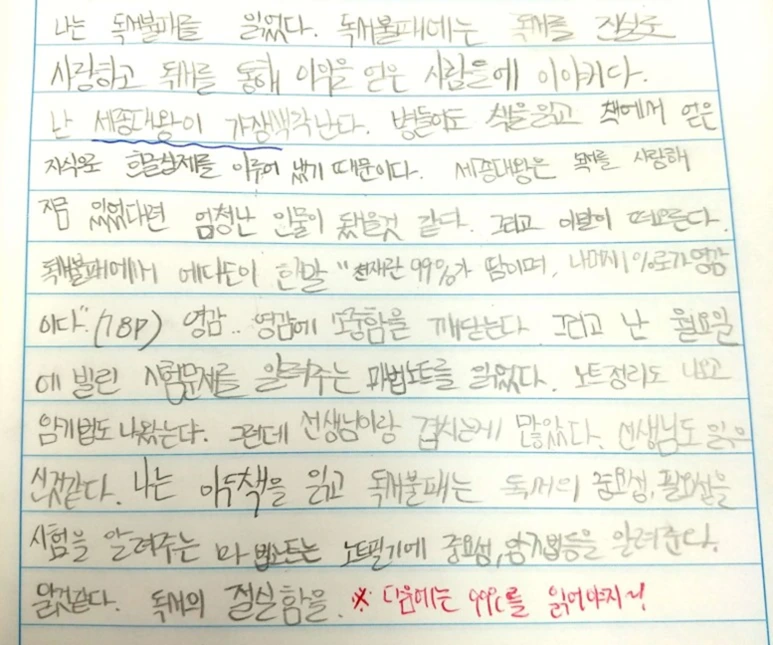 나는 독서불패를 읽었다. 독서불패에는 독서를 진실로
사랑하고 독서를 통해 이익을 얻은 사람들에 이야기다.
난 세종대왕이 가장생각난다. 병들어도 책을읽고 책에서 얻은
지식으로 한글창제를 이루어 냈기 때문이다. 세종대왕은 독서를 사랑해
지금 있었다면 엄청난 인물이 됐을것 같다. 그리고 이말이 떠오른다.
독서불패에서 에디슨이 한말 "천재란 99%가 땀이며, 나머지1%로가영감
이다".(78P) 영감.. 영감에 소중함을 깨닫는다 그리고 난 월요일
에 빌린 시험문제를 알려주는 마법노트를 읽었다. 노트정리도 나오고
암기법도 나왔는다. 그런데 선생님이랑 겹치는게 많았다. 선생님도 읽으
신것같다. 나는 이두책을 읽고 독서불패는 독서의 중요성, 필요성을
시험을 알려주는 마법노트는 노트필기에 중요성, 암기법등을 알려준다.
알것같다. 독서의 절실함을. ※ 다음에는 99℃를 읽어야지~!